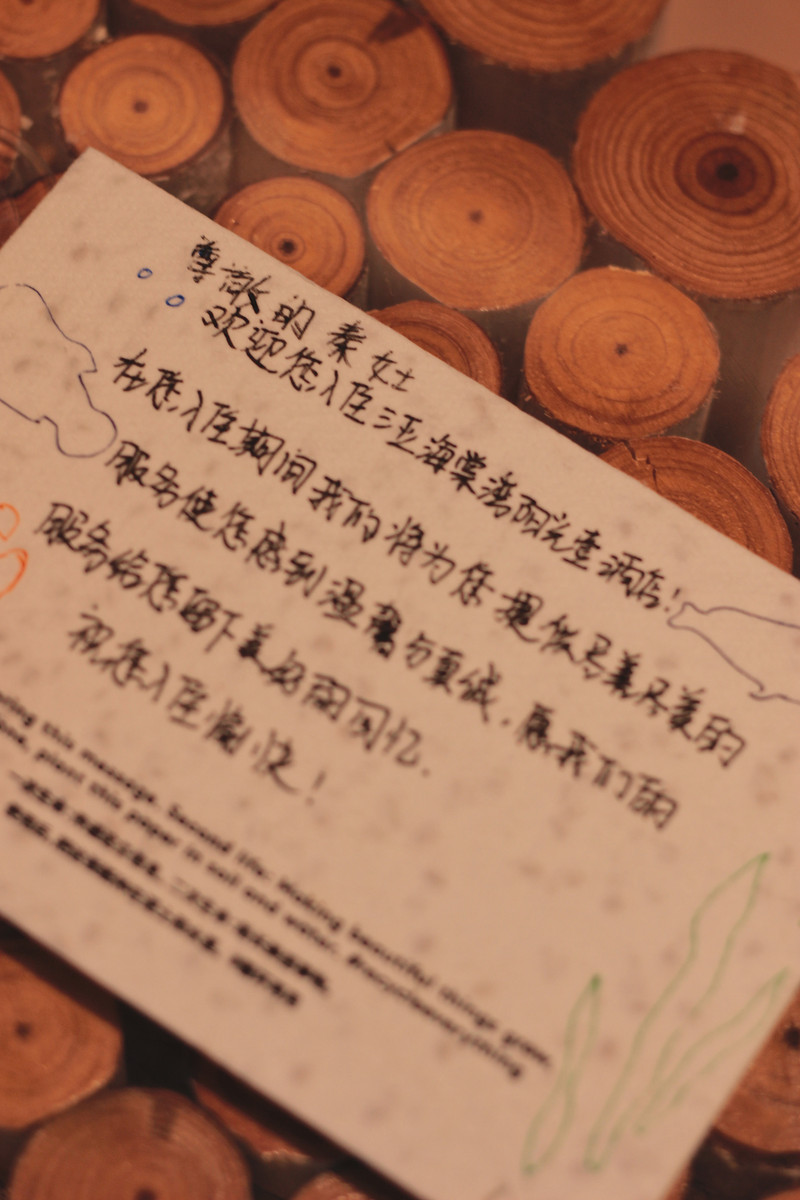 尊敬的秦女士
欢迎您入住三亚海棠湾阳光壹酒店!
在您入住期间我们将为您提供尽善尽美的
服务使您感到温馨与真诚,愿我们的
服务给您留下美好的回忆.
祝您入住愉快!
this message. Second life: Making beautiful things grow.
plant this paper in soil and water. #recycleeverything